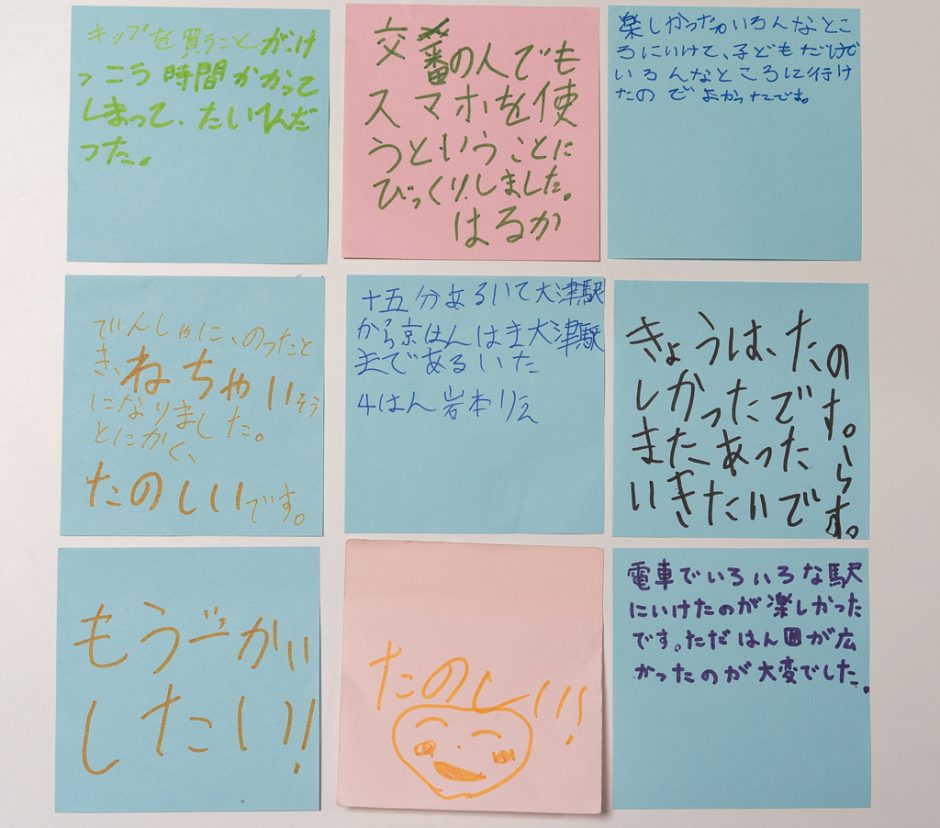 キップを買うことが、け
っこう時間がかかって
しまって、たいへんだ
った。
交番の人でも
スマホを使
うということに
びっくりしました。
はるか
楽しかったがいろんなとこ
ろにいけて、子どもだけで
いろんなところに行け
たのでよかったです。
でんしゃに、のったと
き、ねちゃいそう
になりました。
とにかく、
たのしいです。
十五分あるいて大津駅
から京はんはま大津駅
まであるいた
4はん岩本りえ
きょうは、たの
しかったです。
また、あったら
いきたいです。
もう一かい
したい!!
たのしい!!
電車でいろいろな駅
にいけたのが楽しかった
です。ただはん囲が広
かったのが大変でした。